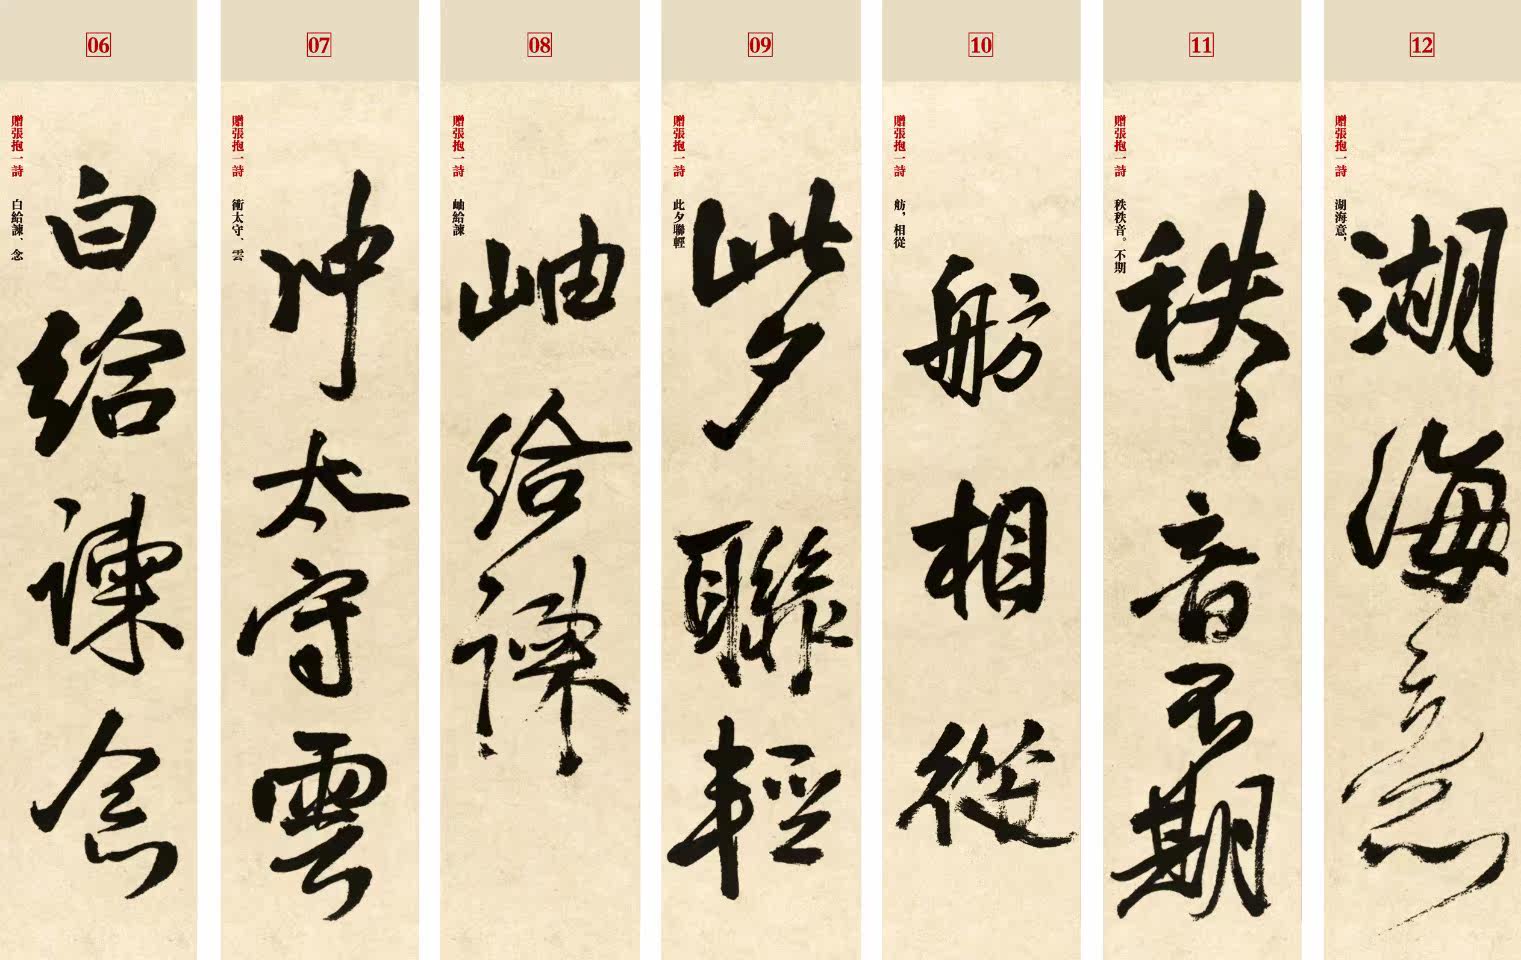 06
贈張抱一詩 白給諫、念
白給諫念
07
贈張抱一詩 衝太守、雲
冲太守雲
08
贈張抱一詩 岫給諫
岫給諫
09
贈張抱一詩 此夕聯輕
此夕聯輕
10
贈張抱一詩 舫，相從
舫相從
11
贈張抱一詩 秩秩音。不期
秩〻音不期
12
贈張抱一詩 湖海意，
湖海意